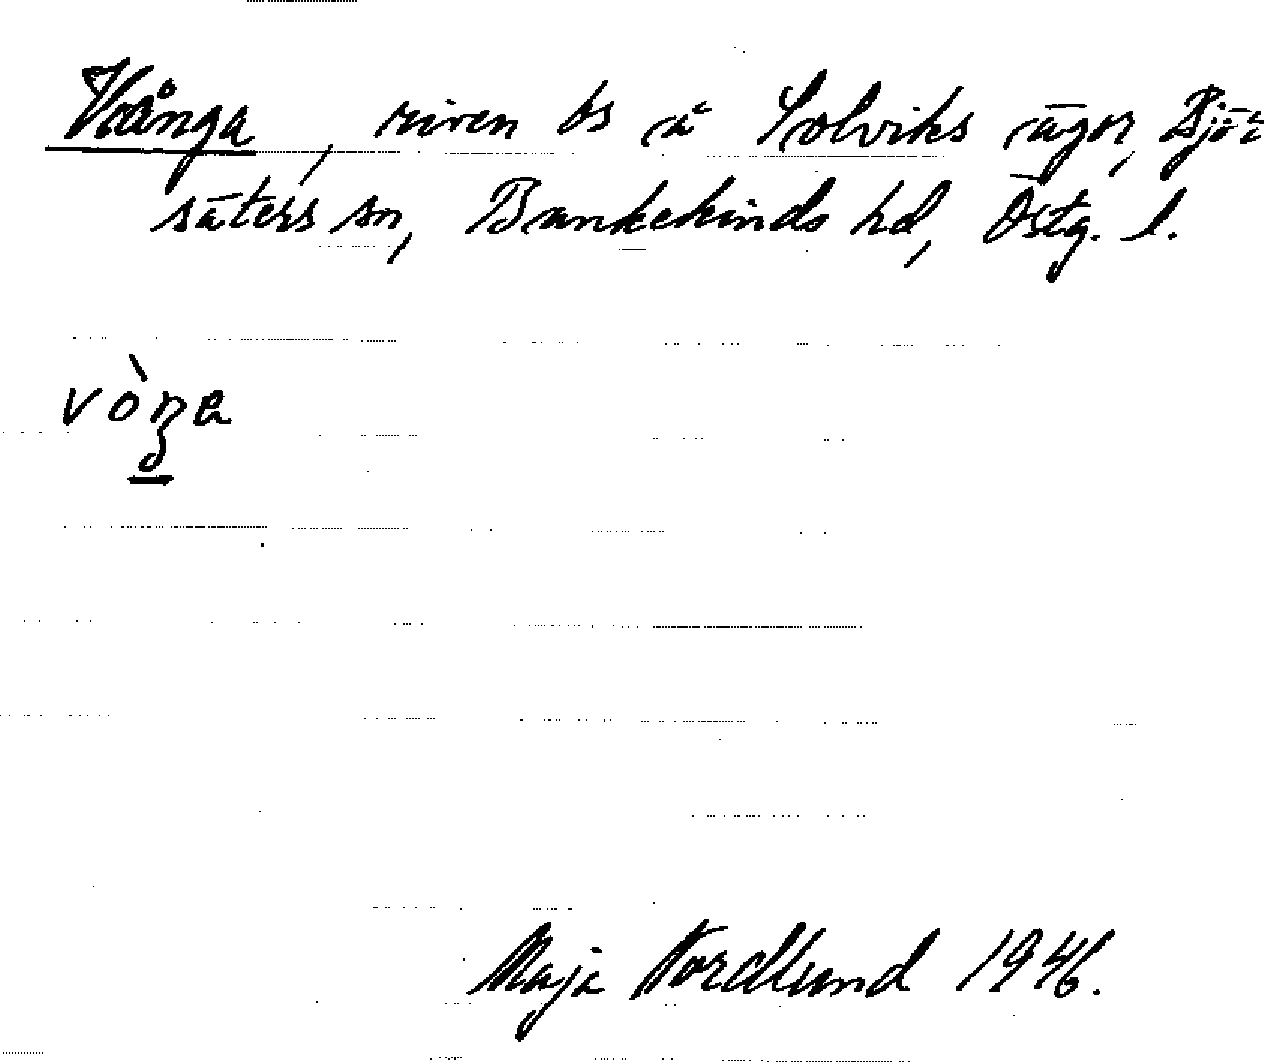 Vånga, riven bs på Solviks ägor, Björ
säters sn, Bankekinds hd, Östg. l.
vòŋa
Maja Nordlund 1946.